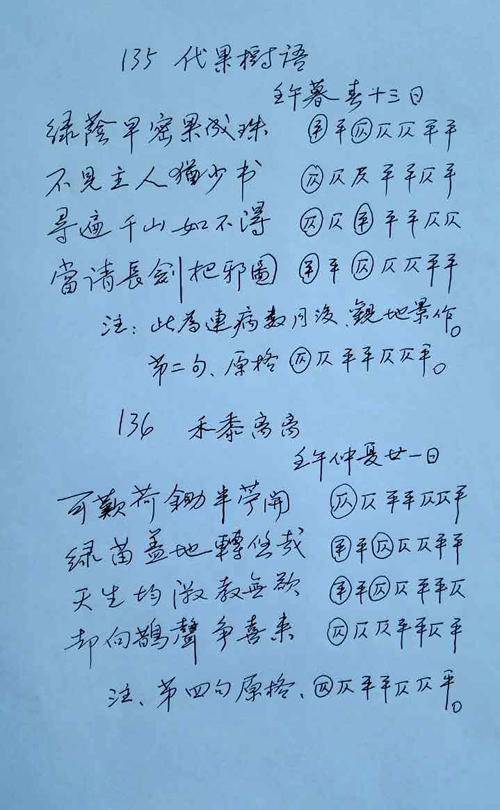 135 代果樹语
壬午暮春十三日
绿蔭早密果成珠 ㊉平㊉仄仄平平
不见主人犹少书 仄仄仄平平仄平
寻遍千山如不得 仄仄平平平仄仄
當请長劍把邪圖 平平仄仄仄平平
注：此為連病数月後、觀地景作。
第二句、原格 仄仄平平仄仄平。
136 禾黍离离
壬午仲夏廿一日
可歎荷鋤半苧開 仄仄平平仄仄平
绿苗盖地轉悠哉 平平仄仄仄平平
天生均激教無欲 平平仄仄平平仄
却向鵲聲争喜来 仄仄仄平平仄平
注、第四句原格、仄仄平平仄仄平。